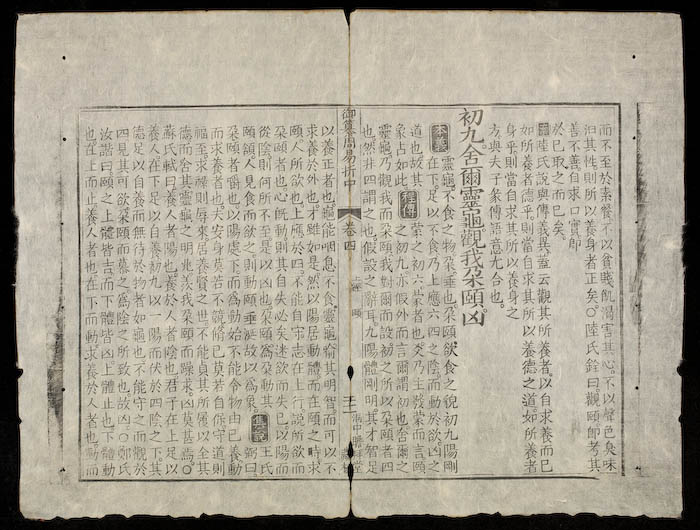 而不至於素餐不以貧賤飢渴害其心不以聲色臭味
汩其性則所以養身者正矣○陸氏銓曰觀頤即考其
善不善自求口實即
於已取之而已矣
案陸氏說與傳義異蓋云觀其所養者以自求養而已
如所養者德乎則當自求其所以養德之道如所養者
身乎則當自求其所以養身之
方與夫子彖傳語意尤合也
初九舍爾靈龜觀我朶頤凶
本義靈龜不食之物朶垂也朶頤欲食之貌初九陽剛
在下足以不食乃上應六四之陰而動於欲凶之
道也故其
象占如此
程傳蒙之初六蒙者也爻乃主發蒙而言頤
之初九亦假外而言爾謂初也舍爾之
靈龜乃觀我而朶頤我對爾而設初之所以朶頤者四
也然非四謂之也假設之辭耳九陽體剛明其才智足
御纂周易折中 卷四 上經 頤
以養正者也龜能咽息不食靈龜喻其明智而可以不
求養於外也才雖如是然以陽居動體而在頤之時求
頤人所欲也上應於四不能自守志在上行說所欲而
朶頤者也心既動則其自失必矣迷欲而失己以陽而
從陰則何所不至是以凶也朶頤為朶動其
頤頷人見食而欲之則動頤垂涎故以為象
集說王氏
弼曰
朶頤者嚼也以陽處下而為動始不能令物由己養動
而求養者也夫安身莫若不競脩己莫若自保守道則
福至求祿則辱來居養賢之世不能貞其所履以全其
德而舍其靈龜之明兆羨我朶頤而躁求凶莫甚焉○
蘇氏軾曰養人者陽也養於人者陰也君子在上足以
養人在下足以自養初九以一陽而伏於四陰之下其
德足以自養而無待於物者如龜也不能守之而觀於
四見其可欲朶頤而慕之為陰之所致也故凶○鄭氏
汝諧曰頤之上體皆吉而下體皆凶上體止也下體動
也在上而止養人者也在下而動求養於人者也動而